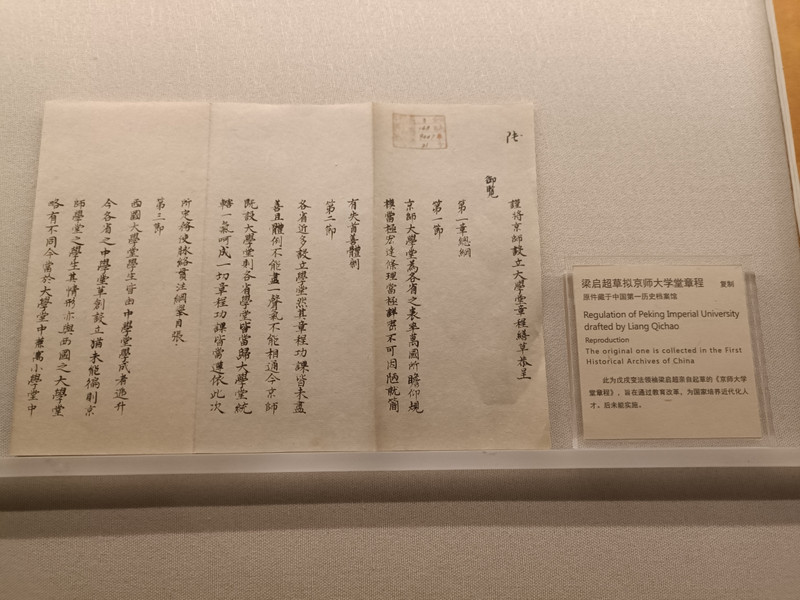 謹將京師設立大學堂章程繕單恭呈
御覽
第一章總綱
第一節
京師大學堂為各省之表率萬國所瞻仰規
模當極宏遠條理當極詳密不可因陋就簡
有失首善體制
第二節
各省近多設立學堂然其章程功課皆未盡
善且體例不能盡一聲氣不能相通今京師
既設大學堂則各省學堂皆當歸大學堂統
轄一氣呵成一切章程功課皆當遵依此次
所定務使脉絡貫注綱舉目張
第三節
西國大學堂學生皆由中學堂學成者遞升
今各省之中學堂草創設立猶未能徧則京
師學堂之學生其情形亦與西國之大學堂
略有不同今當於大學堂中兼寓小學堂中
梁启超草拟京师大学堂章程 复制
原件藏于中国第一历史档案馆
Regulation of Peking Imperial University
drafted by Liang Qichao
Reproduction
The original one is collected in the First
Historical Archives of China
此为戊戌变法领袖梁启超亲自起草的《京师大学
堂章程》，旨在通过教育改革，为国家培养近代化人
才，后未能实施。